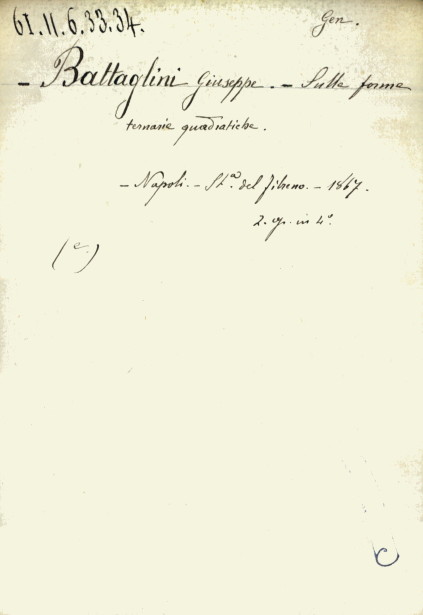 61.11.6.33.34.
Gen.
- Battaglini Giuseppe. - Sulle forme
ternarie quadratiche.
- Napoli. - St.a del Fibreno. - 1867.
2. op. in 4°.
(e)
C